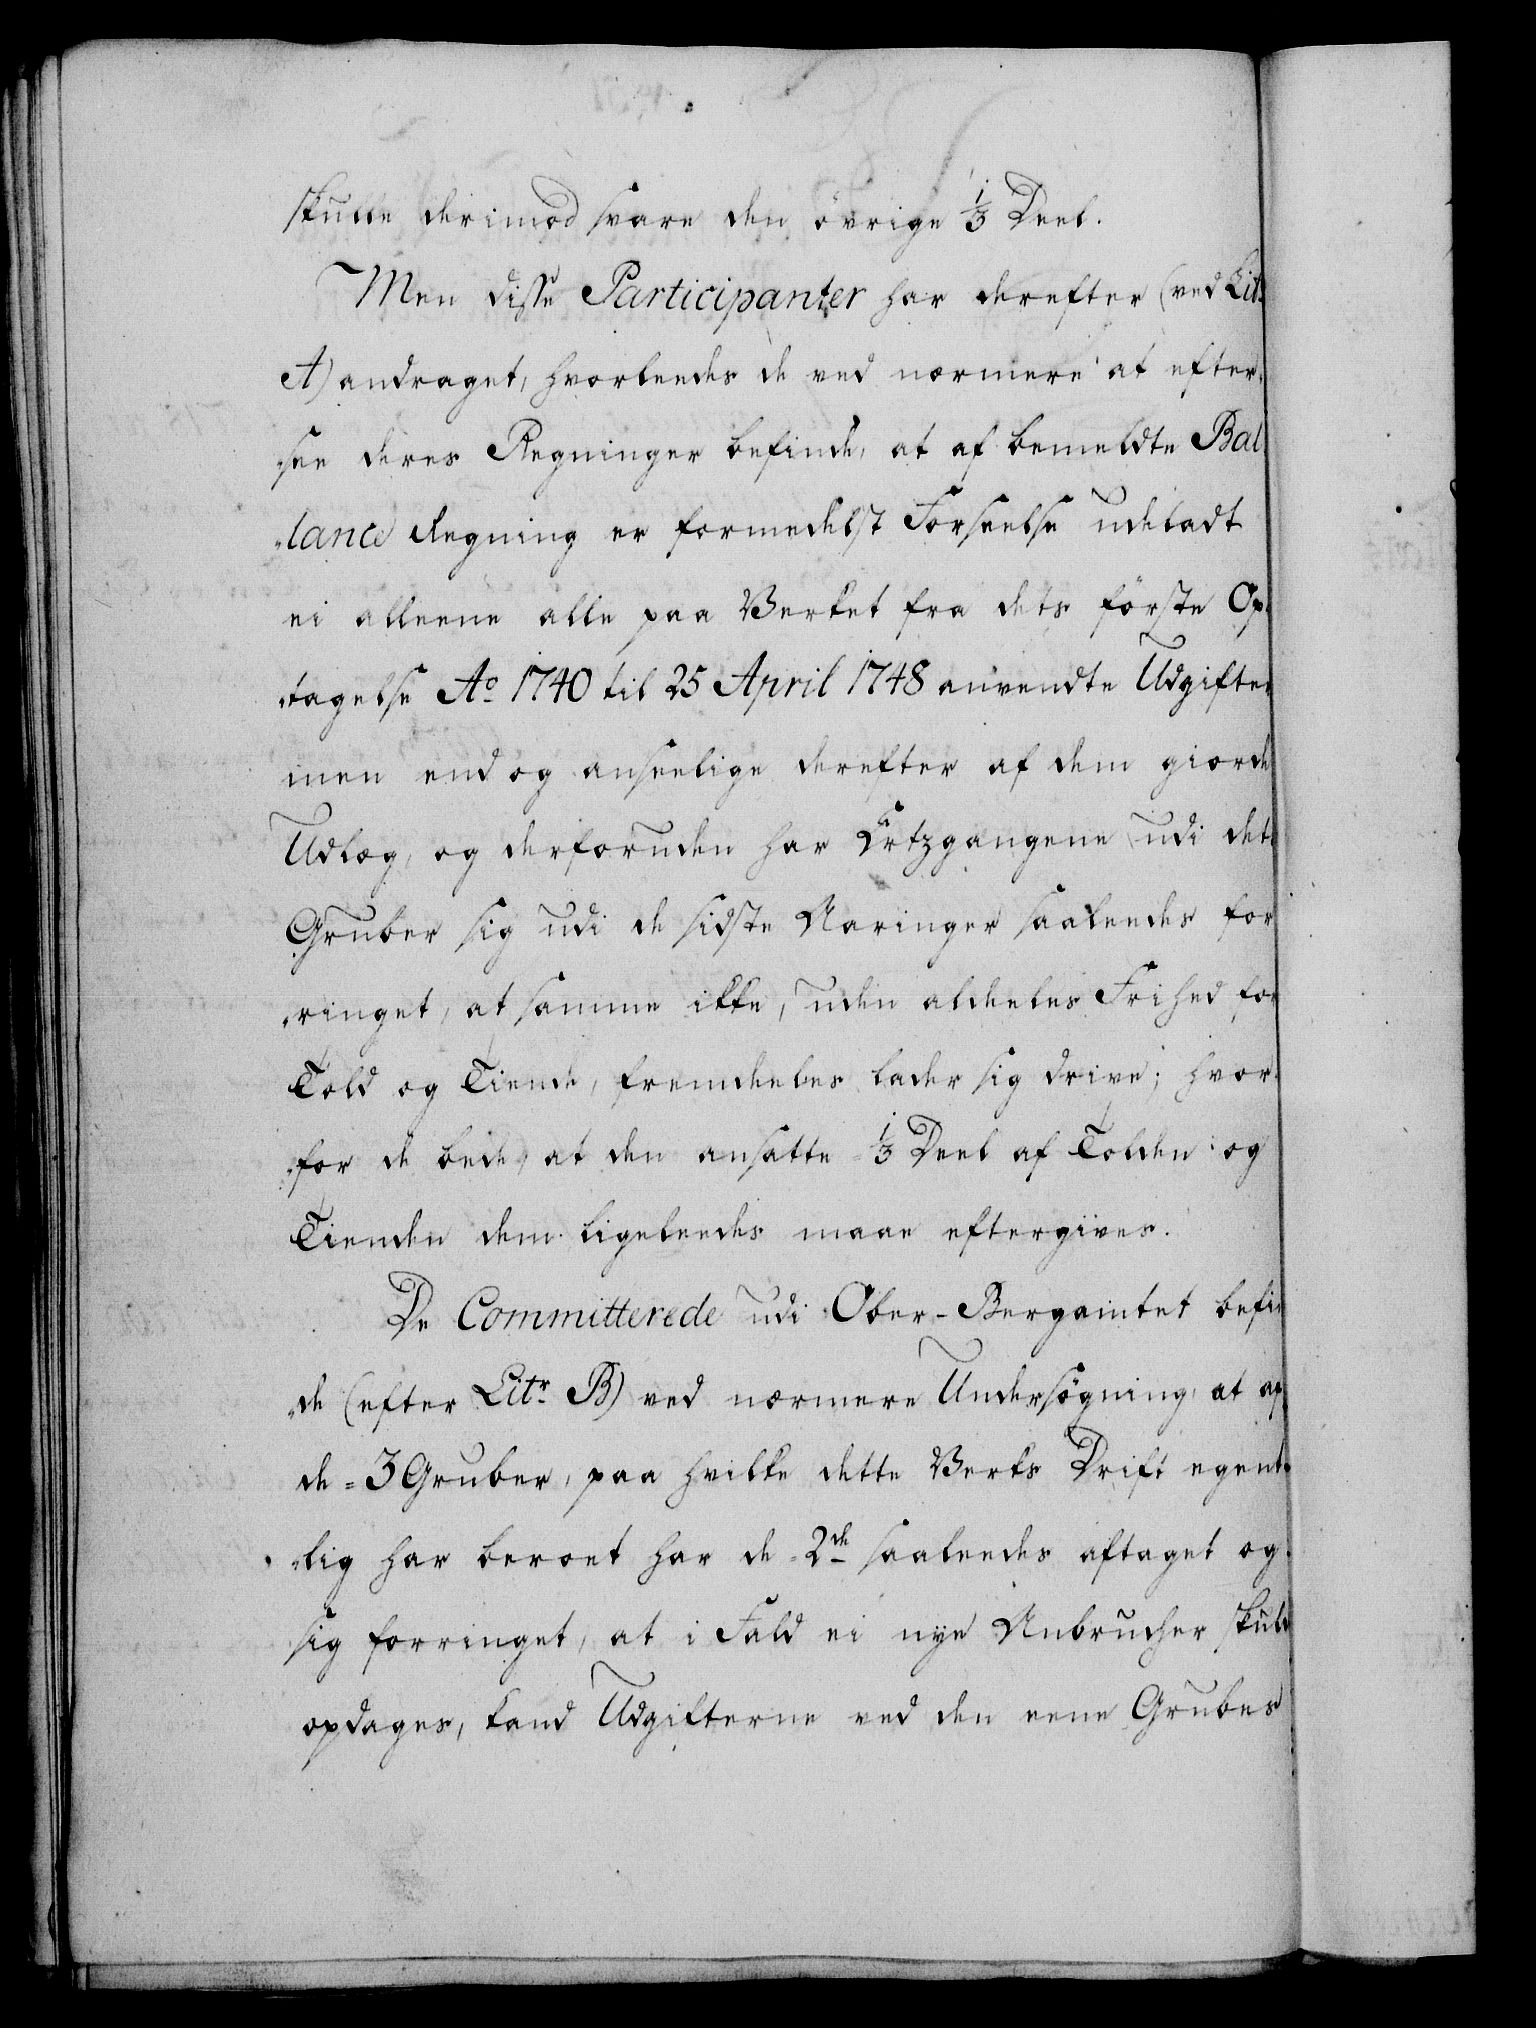 skulle derimod svare den övrige 1/3 Deel.
Men disse Participanter har derefter (ved Litr.
A) andraget, hvorleedes de ved nærmere at efter-
„see deres Regninger befinde, at af bemeldte Bal-
„lance Regning er formedelst Forseelse udeladt
ei alleene alle paa Verket fra dets förste Op-
„tagelse Ao 1740 til 25 April 1748 anvendte Udgifter
men endog anseelige derefter af dem giorde
Udlæg, og derforuden har Ertzgangene udi det
Gruber sig udi de sidste Aaringer saaleedes for
„ringet, at samme ikke, uden aldeeles Frihed for
Told og Tiende, fremdeeles lader sig drive; hvor-
„for de bede, at den ansatte 1/3 Deel af Tolden og
Tienden dem ligeleedes maae eftergives.
De Committerede udi Ober-Bergamtet befin
„de (efter Litr. B) ved nærmere Undersögning, at af
de 3 Gruber, paa hvilke dette Verks Drift egent-
„lig har beroet har de 2de saaleedes aftaget og
sig forringet, at i Fald ei nye Anbrucher skulde
opdages, kand Udgifterne ved den eene Grubes